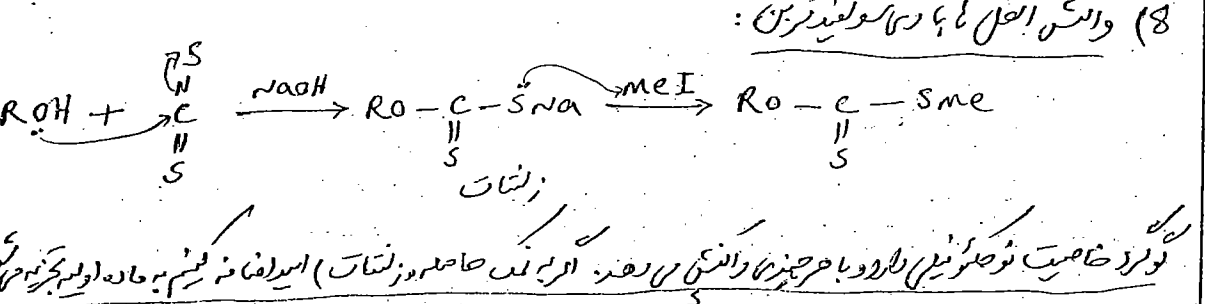 8) واکنش الکل ها با دی سولفید کربن :
S
ROH + C NaOH RO – C – SNa MeI RO – C – SMe
S S S
زنتات
گوگرد خاصیت نوکلئوفیلی دارد و با هر چیزی واکنش می دهد. اگر به نمک حاصله (زنتات) اسید اضافه کنیم به ماده اولیه تجزیه می